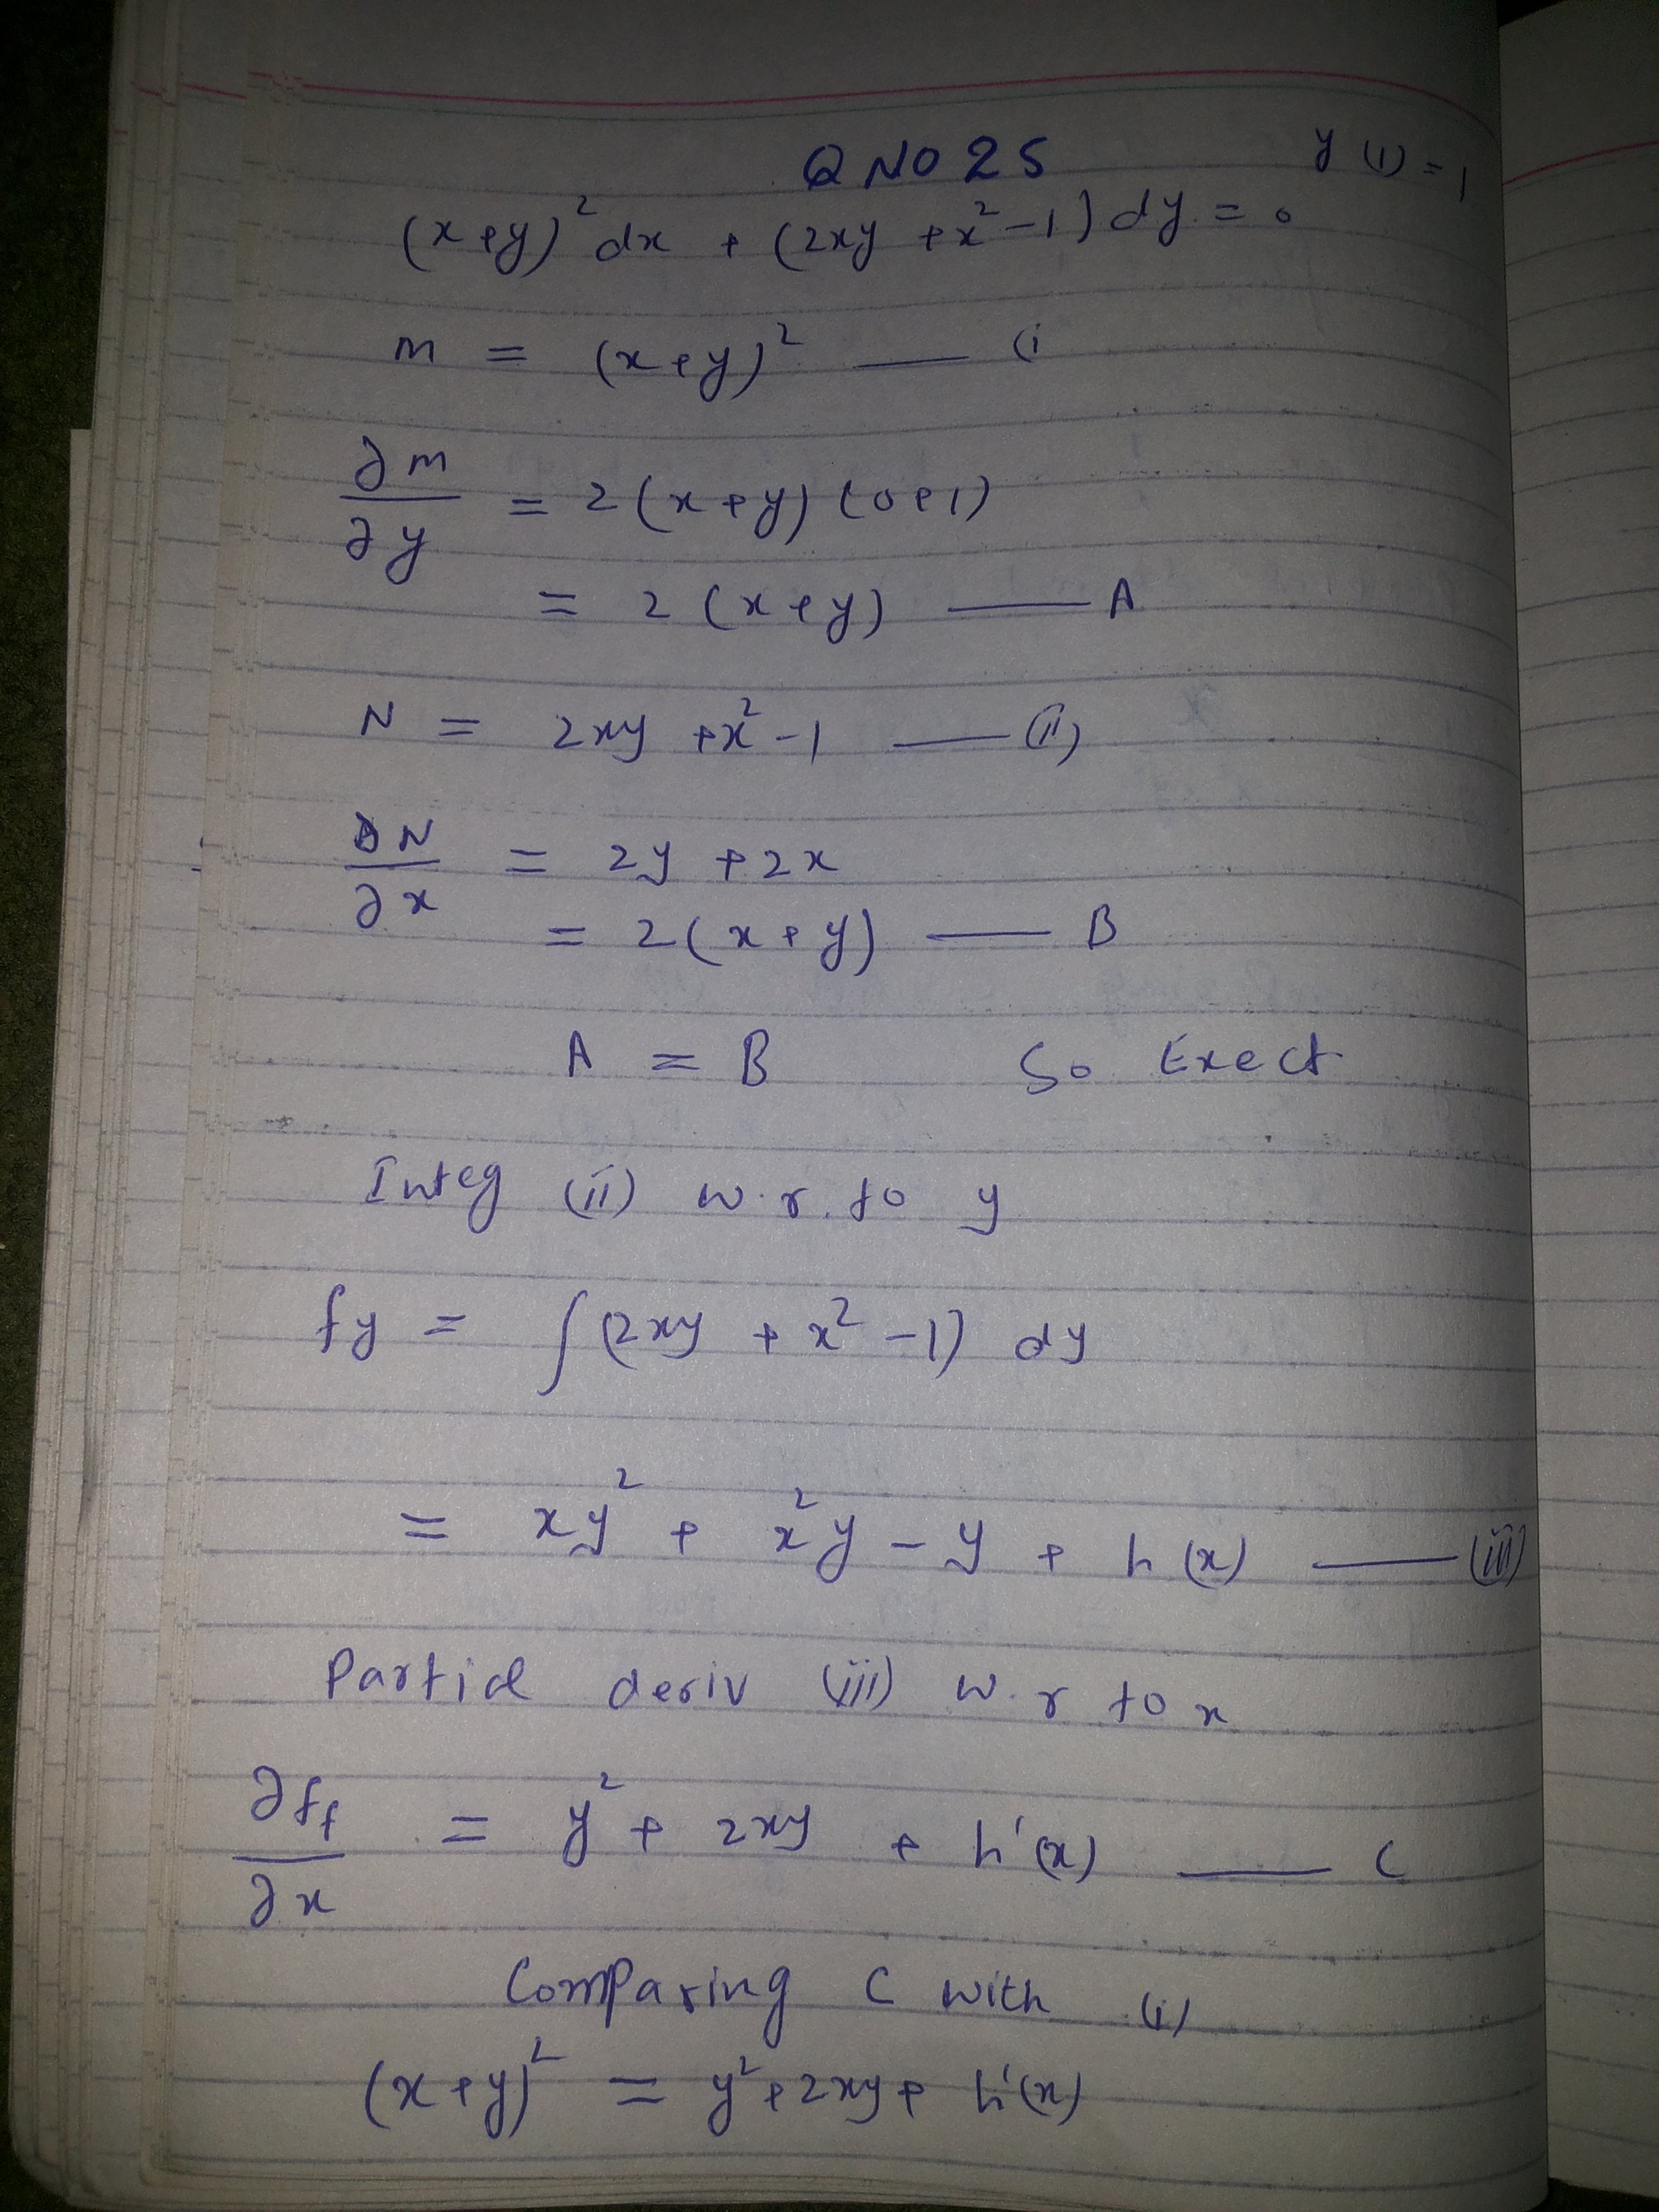 Q NO 25 y (1) = 1
(x+y)² dx + (2xy + x² - 1) dy = 0
m = (x+y)² — (i
∂m/∂y = 2(x+y)(0+1)
= 2(x+y) — A
N = 2xy + x² - 1 — (ii)
∂N/∂x = 2y + 2x
= 2(x+y) — B
A = B So Exect
Integ (ii) w.r. to y
fy = ∫(2xy + x² - 1) dy
= xy² + x²y - y + h(x) — (iii)
Partial deriv (iii) w.r to x
∂ff/∂x = y² + 2xy + h'(x) — C
Comparing C with (i)
(x+y)² = y² + 2xy + h'(x)